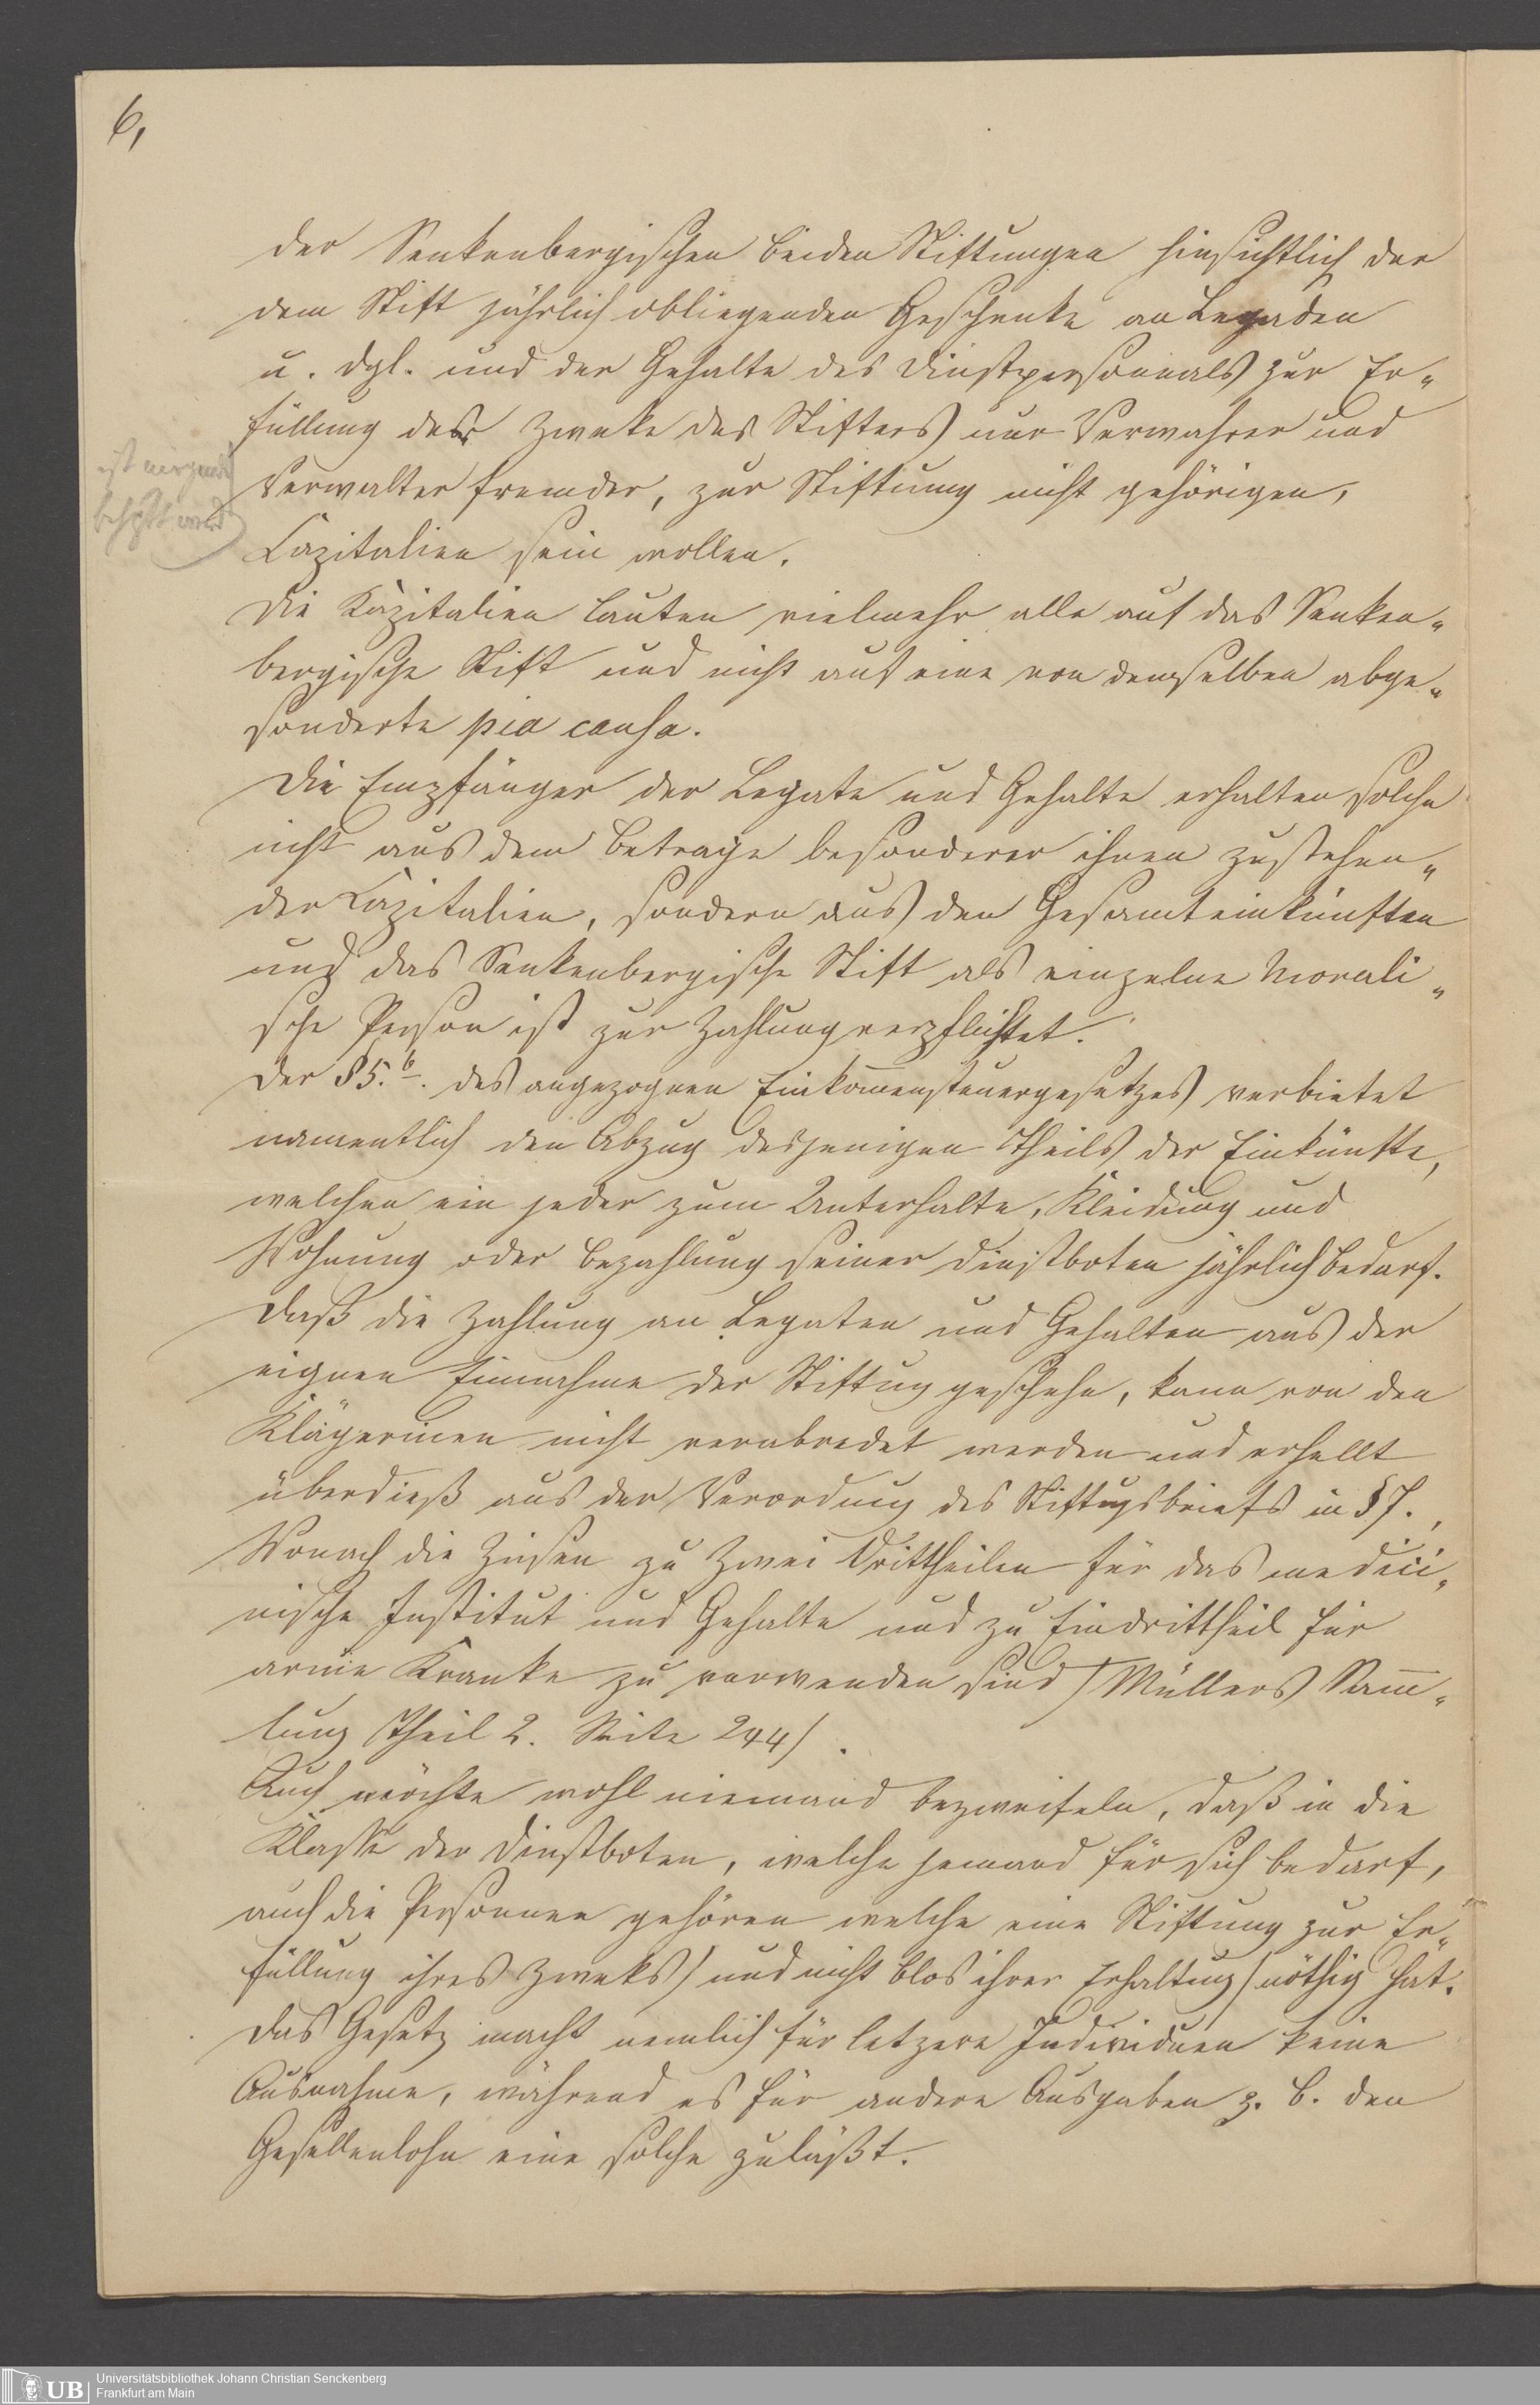 6,
der Senkenbergischen beiden Stiftungen hinsichtlich der
dem Stift jährlich obliegenden Geschenke an Legaden
u. dgl. und der Gehalte des Dienstpersonals zur Er-
füllung der Zweke des Stifters nur Verwahrer und
ist nirgends
Verwalter fremder, zur Stiftung nicht gehörigen,
Capitalien sein wollen.
Die Kapitalien lauten vielmehr alle auf das Senken-
bergische Stift und nicht auf eine von demselben abge-
sonderte pia causa.
Die Empfänger der Legate und Gehalte erhalten solche
nicht aus dem Betrage besonderer ihnen zustehen-
der Capitalien, sondern aus den Gesamteinkünften
und das Senkenbergische Stift als einzelne Morali-
sche Person ist zur Zahlung verpflichtet.
Der §5.b. des angezognen Einkommensteuergesetzes verbietet
namentlich den Abzug desjenigen Theils der Einkünfte,
welchen ein jeder zum Unterhalte, Kleidung und
Wohnung oder Bezahlung seiner Dienstboten jährlich bedarf.
Daß die Zahlung an Legaten und Gehalten aus der
eignen Einnahme der Stiftung geschehe, kann von den
Klägerinen nicht verabredet werden und erhellt
überdieß aus der Verordung des Stiftugsbriefs in §7.,
Wonach die Zinsen zu Zwei Drittheilen für das medici-
nische Institut und Gehalte und zu Eindrittheil für
arme Kranke zu verwenden sind /Müllers Samm-
lung Theil 2. Seite 244/.
Auch möchte wohl niemand bezweifeln, daß in die
Klasse der Dienstboten, welche jemand für sich bedarf,
auch die Personnen gehören welche eine Stiftung zur Er-
füllung ihres Zweks / und nicht blos ihrer Erhaltung / nöthig hat.
Das Gesetz macht nemlich für letzere Individuen keine
Ausnahme, während es für andere Ausgaben z. B. den
Gesellenlohn eine solche zuläßt.
UB
Universitätsbibliothek Johann Christian Senckenberg
Frankfurt am Main